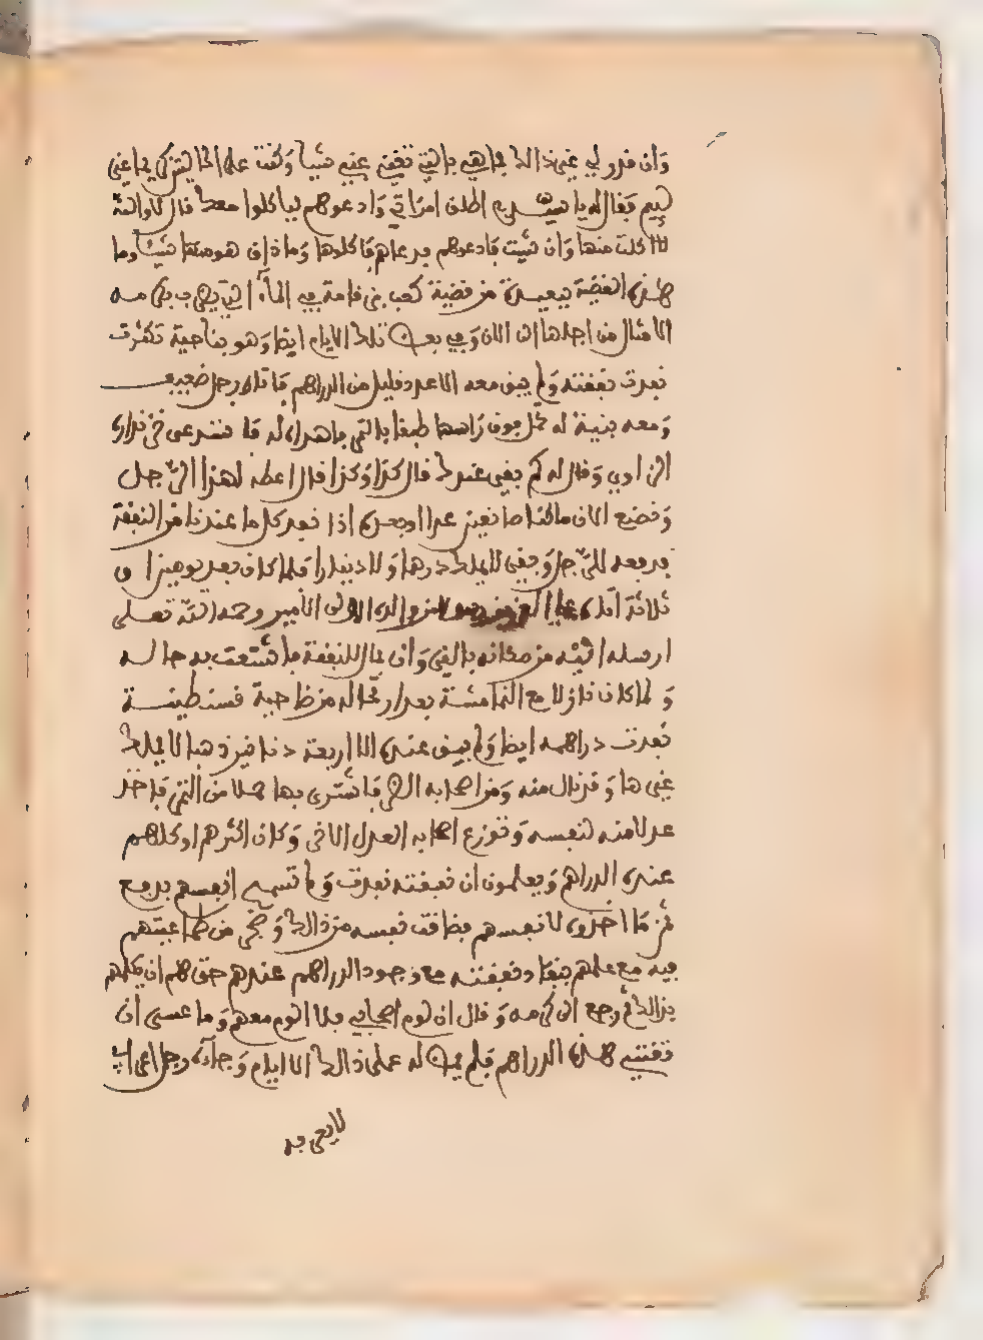 وان قدر لي غير ذالك فما هي بالتي تغني عني شيئا وكنت على الحالة التي يراعى
لهم فقال له يا شيخ اطلق امراتي وادعوهم لياكلوا معك قال لا والله
لا اكلت منها وان شيت فادعوهم فدعاهم فاكلوها وما ذاق هو منها شيئا وما
هذه القضية ببعيدة من قضية كعب بن مامة في الماء التي يضرب بكرمه
الامثال من اجلها الى الان وفي بعض تلك الايام ايضا وهو بناحية تڭرت
نفدت نفقته ولم يبق معه الا عدد قليل من الدراهم فاتاه رجل ضعيف
ومعه بنية له تحمل فوق راسها طبقا بالتمر فاهداه له
وقال له كم بقي عندك قال كذا وكذا قال اعطه لهذا الرجل
ونضيع الان ما كنا ضائعين غدا او بعده اذا نفد كل ما عندنا من النفقة
فدفعه للرجل وبقي لا يملك درهما ولا دينارا فلما كان بعد يومين او
ثلاثة اتاه والده الولي الامير رحمه الله تعلى
ارسله اليه من مكانه بالفي وان بمال للنفقة فانتعشت به حاله
ولما كان نازلا مع النمامشة بعد ارتحاله من ناحية قسنطينة
نفدت دراهمه ايضا ولم يبق عنده الا اربعة دنانير ذهبا لا يملك
غيرها وقد نال منه ومن اصحابه الضر فاشترى بها حملا من التمر فاخذ
عدلا منه لنفسه وتوزع اصحابه العدل الاخر وكان اكثرهم او كلهم
عنده الدراهم ويعلمون ان نفقته نفدت ولم تسمح انفسهم بدفع
ثمن ما اخذوه لانفسهم فضاقت نفسه من ذالك وضجر من طماعيتهم
فيه مع علمهم بنفاد نفقته مع وجود الدراهم عندهم حتى هم ان يكلمهم
بذالك ثم رجع الى كرمه وقال ان لوم اصحابي فلا الوم معهم وما عسى ان
تغنيني هذه الدراهم فلم يمض له على ذالك الا ايام وجاءه رجل اعرابي
لا يعرفه